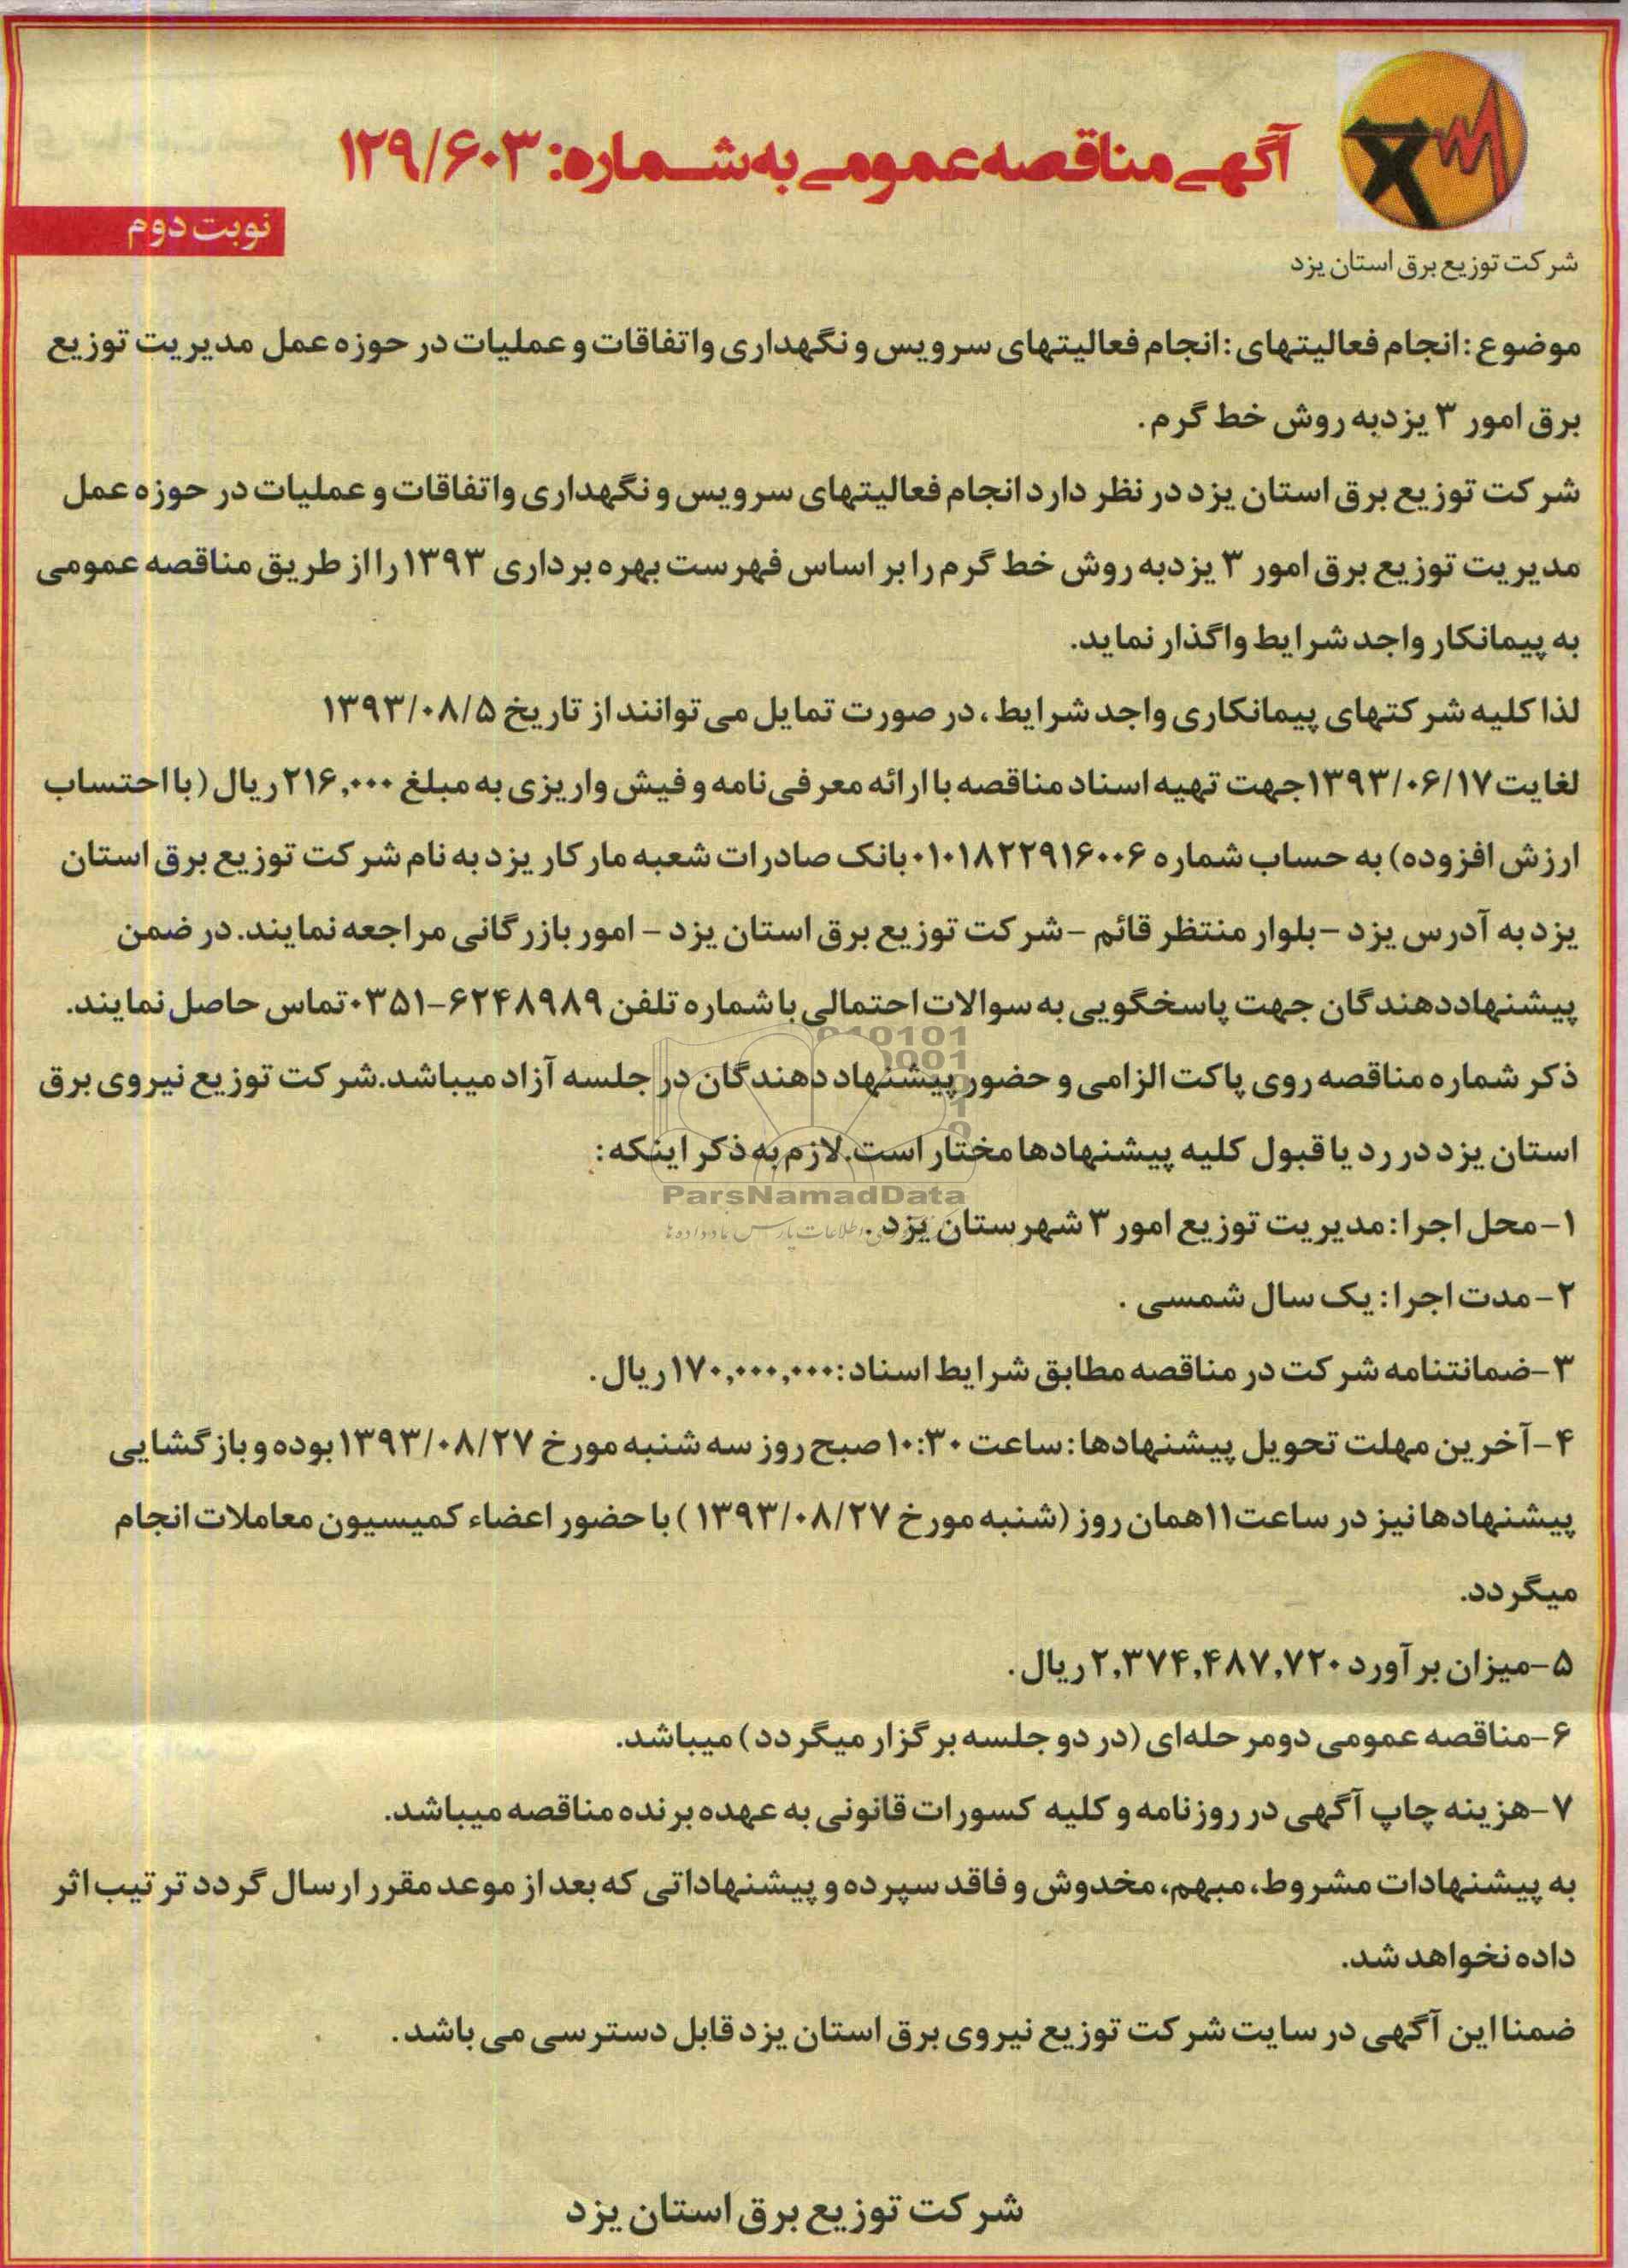 آگهی مناقصه عمومی به شماره: ۱۲۹/۶۰۳
نوبت دوم
شرکت توزیع برق استان یزد
موضوع: انجام فعالیتهای: انجام فعالیتهای سرویس و نگهداری و اتفاقات و عملیات در حوزه عمل مدیریت توزیع
برق امور ۳ یزدبه روش خط گرم.
شرکت توزیع برق استان یزد در نظر دارد انجام فعالیتهای سرویس و نگهداری و اتفاقات و عملیات در حوزه عمل
مدیریت توزیع برق امور ۳ یزدبه روش خط گرم را بر اساس فهرست بهره برداری ۱۳۹۳ را از طریق مناقصه عمومی
به پیمانکار واجد شرایط واگذار نماید.
لذا کلیه شرکتهای پیمانکاری واجد شرایط، در صورت تمایل می توانند از تاریخ ۱۳۹۳/۰۸/۵
لغایت ۱۳۹۳/۰۶/۱۷ جهت تهیه اسناد مناقصه با ارائه معرفی نامه و فیش واریزی به مبلغ ۲۱۶,۰۰۰ ریال (با احتساب
ارزش افزوده) به حساب شماره ۰۱۰۱۸۲۲۹۱۶۰۰۶ بانک صادرات شعبه مارکار یزد به نام شرکت توزیع برق استان
یزد به آدرس یزد – بلوار منتظر قائم – شرکت توزیع برق استان یزد – امور بازرگانی مراجعه نمایند. در ضمن
پیشنهاددهندگان جهت پاسخگویی به سوالات احتمالی با شماره تلفن ۶۲۴۸۹۸۹-۰۳۵۱ تماس حاصل نمایند.
ذکر شماره مناقصه روی پاکت الزامی و حضور پیشنهاد دهندگان در جلسه آزاد میباشد. شرکت توزیع نیروی برق
استان یزد در رد یا قبول کلیه پیشنهادها مختار است. لازم به ذکر اینکه:
ParsNamadData
۱- محل اجرا: مدیریت توزیع امور ۳ شهرستان یزد.
۲- مدت اجرا: یک سال شمسی.
۳- ضمانتنامه شرکت در مناقصه مطابق شرایط اسناد: ۱۷۰,۰۰۰,۰۰۰ ریال.
۴- آخرین مهلت تحویل پیشنهادها: ساعت ۱۰:۳۰ صبح روز سه شنبه مورخ ۱۳۹۳/۰۸/۲۷ بوده و بازگشایی
پیشنهادها نیز در ساعت ۱۱ همان روز (شنبه مورخ ۱۳۹۳/۰۸/۲۷ ) با حضور اعضاء کمیسیون معاملات انجام
میگردد.
۵- میزان برآورد ۲,۳۷۴,۴۸۷,۷۲۰ ریال.
۶- مناقصه عمومی دومرحله‌ای (در دو جلسه برگزار میگردد) میباشد.
۷- هزینه چاپ آگهی در روزنامه و کلیه کسورات قانونی به عهده برنده مناقصه میباشد.
به پیشنهادات مشروط، مبهم، مخدوش و فاقد سپرده و پیشنهاداتی که بعد از موعد مقرر ارسال گردد ترتیب اثر
داده نخواهد شد.
ضمنا این آگهی در سایت شرکت توزیع نیروی برق استان یزد قابل دسترسی می باشد.
شرکت توزیع برق استان یزد